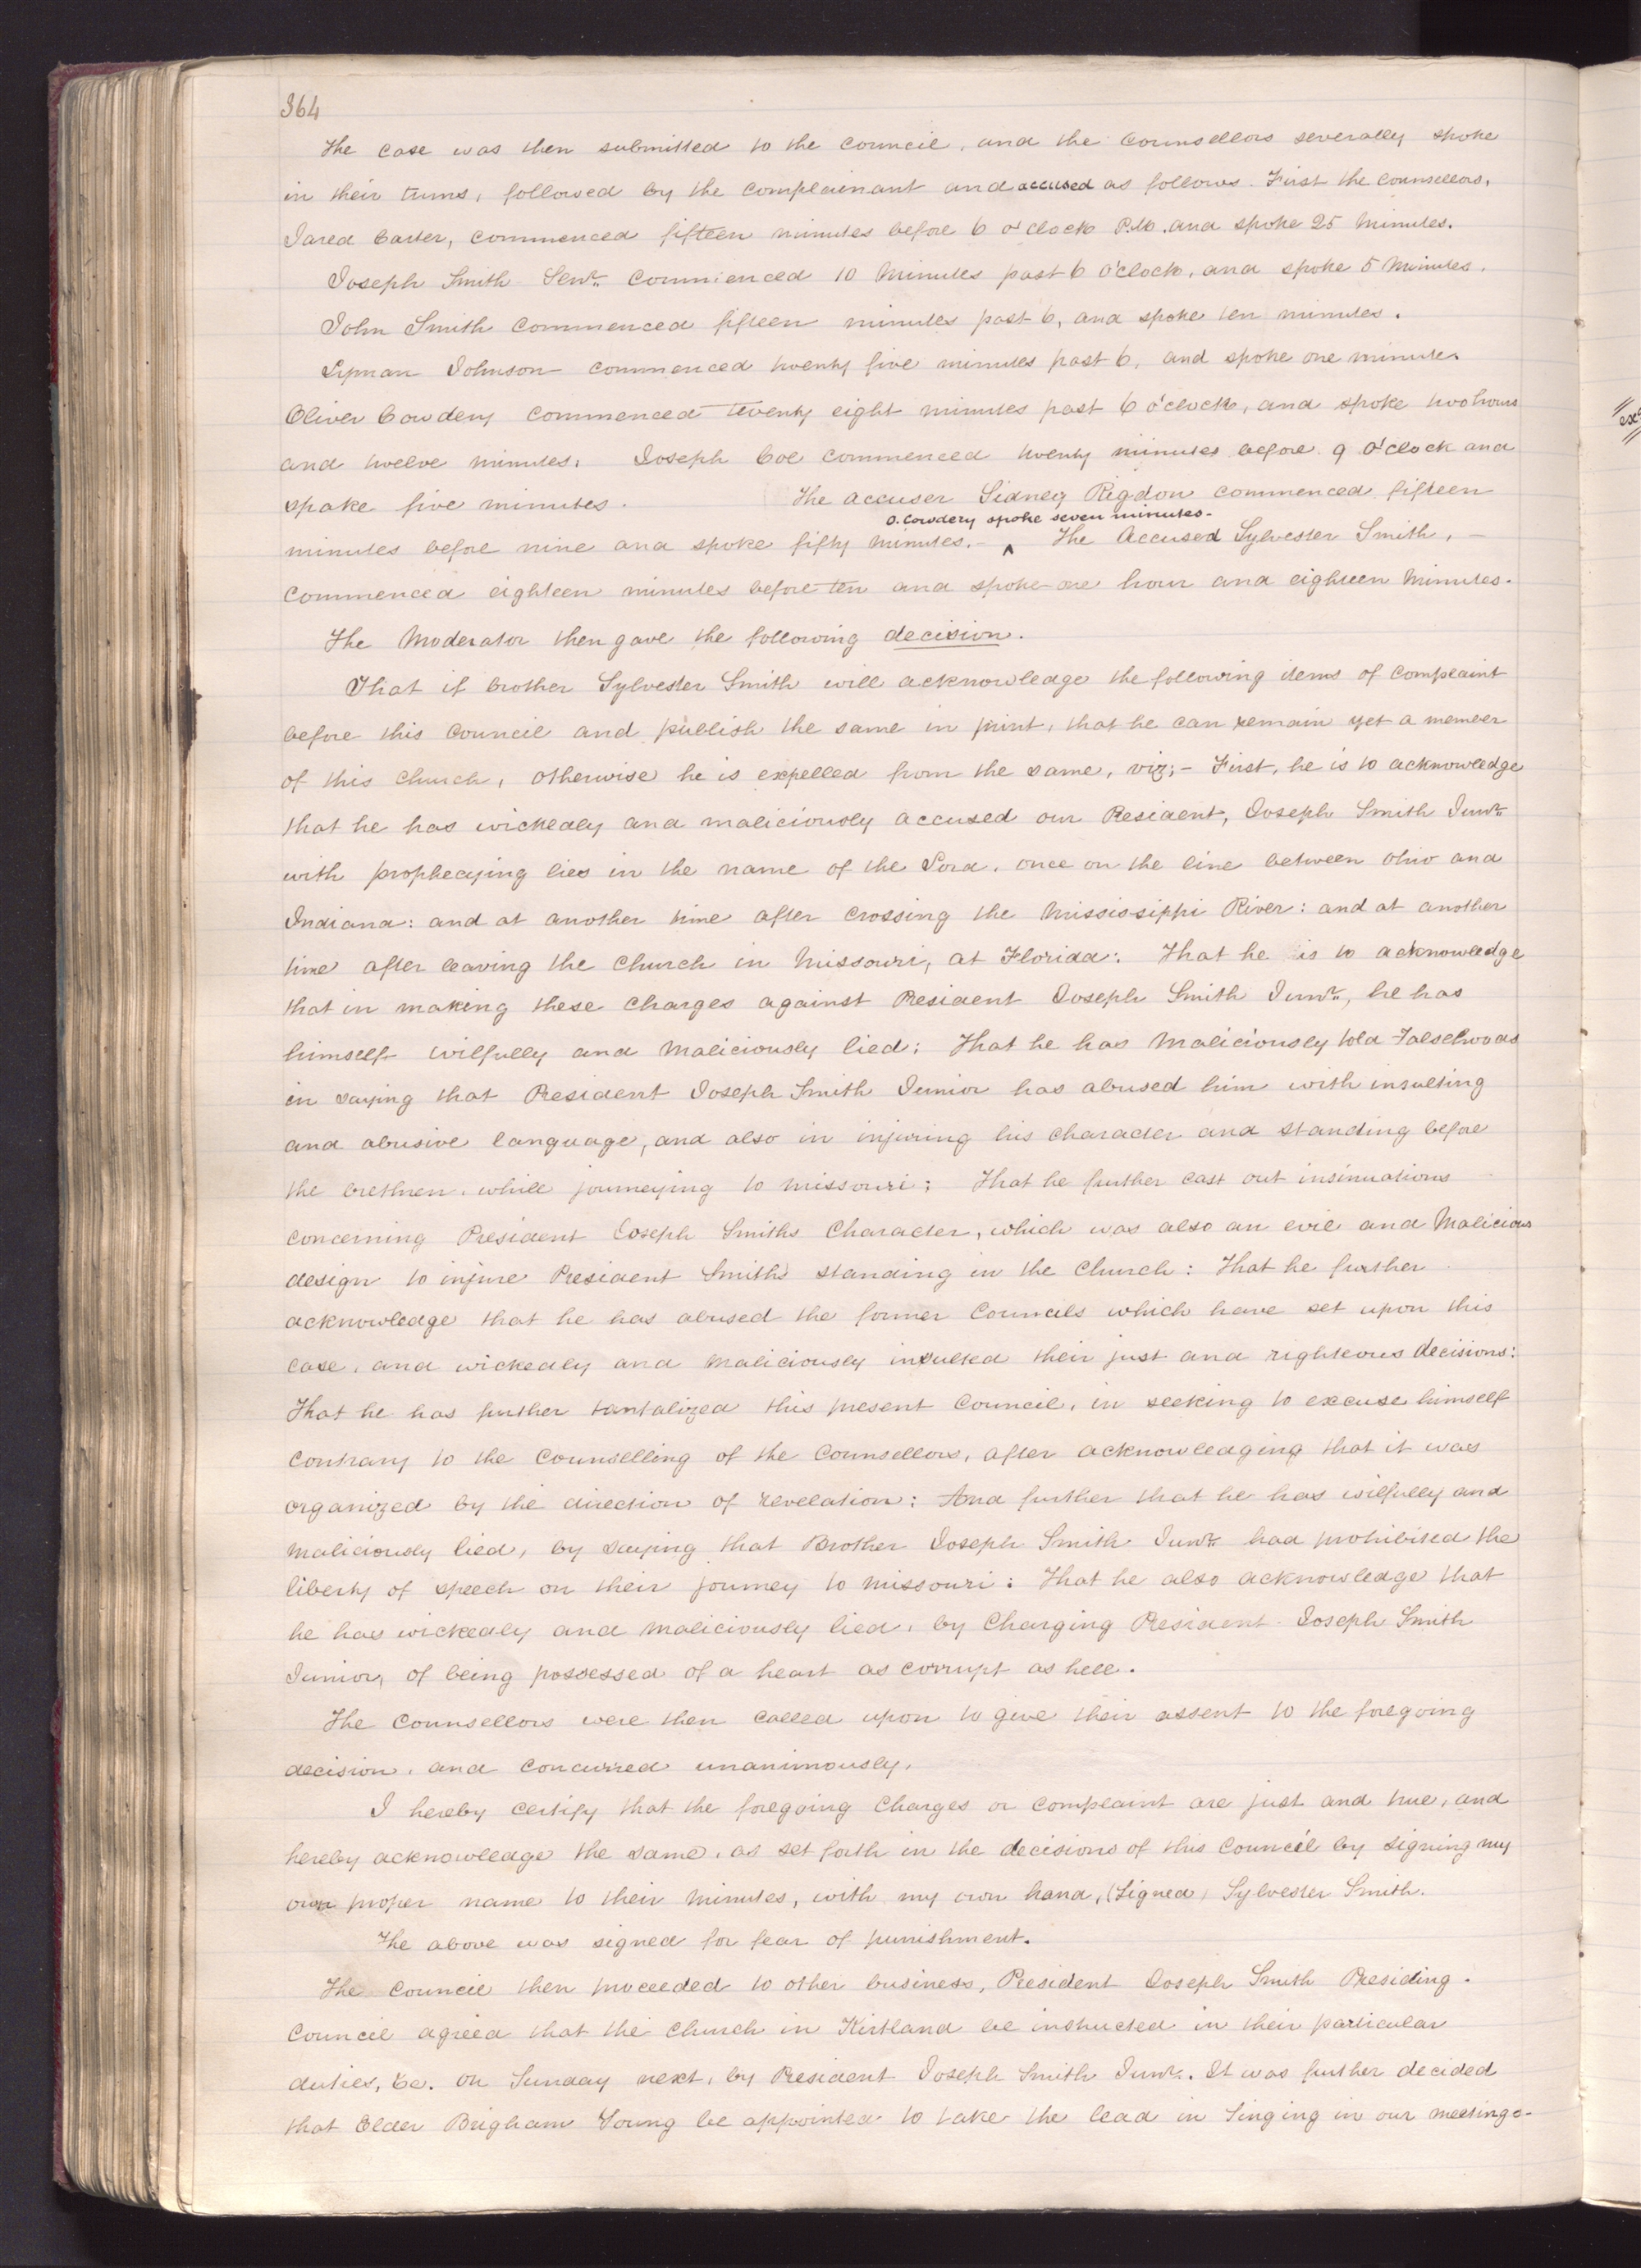 364
The case was then submitted to the council, and the Counsellors severally spoke
in their turns, followed by the complainant and accused as follows. First the counsellors,
Jared Carter, commenced fifteen minutes before 6 o'clock P.M. and spoke 25 Minutes.
Joseph Smith Senr. commenced 10 Minutes past 6 O'clock, and spoke 5 Minutes.
John Smith commenced fifteen minutes past 6, and spoke ten minutes.
Lyman Johnson commenced twenty five minutes past 6, and spoke one minute.
Oliver Cowdery commenced twenty eight minutes past 6 o'clock, and spoke two hours
and twelve minutes. Joseph Coe commenced twenty minutes before 9 O'clock and
spoke five minutes. The accuser Sidney Rigdon commenced fifteen
O. Cowdery spoke seven minutes-
minutes before nine and spoke fifty minutes.- ^ The Accused Sylvester Smith, -
commenced eighteen minutes before ten and spoke one hour and eighteen Minutes.
The Moderator then gave the following decision.
That if brother Sylvester Smith will acknowledge the following items of complaint
before this council and publish the same in print, that he can remain yet a member
of this church, otherwise he is expelled from the same, viz;- First, he is to acknowledge
that he has wickedly and maliciously accused our President, Joseph Smith Junr.
with prophecying lies in the name of the Lord, once on the line between Ohio and
Indiana: and at another time after crossing the Mississippi River: and at another
time after leaving the church in Missouri, at Florida: That he is to acknowledge
that in making these charges against President Joseph Smith Junr., he has
himself wilfully and Maliciously lied: That he has Maliciously told Falsehoods
in saying that President Joseph Smith Junior has abused him with insulting
and abusive language, and also in injuring his character and standing before
the brethren, while journeying to missouri; That he further cast out insinuations
concerning President Joseph Smiths Character, which was also an evil and Malicious
design to injure President Smiths standing in the Church: That he further
acknowledge that he has abused the former Councils which have set upon this
case, and wickedly and Maliciously insulted their just and righteous decisions:
That he has further tantalized this present Council, in seeking to excuse himself
contrary to the Counselling of the Counsellors, after acknowledging that it was
organized by the direction of revelation: And further that he has wilfully and
Maliciously lied, by saying that Brother Joseph Smith Junr. had prohibited the
liberty of speech on their journey to Missouri: That he also acknowledge that
he has wickedly and Maliciously lied, by Charging President Joseph Smith
Junior, of being possessed of a heart as corrupt as hell.
The Counsellors were then called upon to give their assent to the foregoing
decision, and concurred unanimously.
I hereby certify that the foregoing Charges or complaint are just and true, and
hereby acknowledge the same, as set forth in the decisions of this Council by signing my
own proper name to their Minutes, with my own hand, (Signed) Sylvester Smith.
The above was signed for fear of punishment.
The Council then proceeded to other business, President Joseph Smith Presiding.
Council agreed that the Church in Kirtland be instructed in their particular
duties, &c. on Sunday next, by President Joseph Smith Junr. It was further decided
that Elder Brigham Young be appointed to take the lead in Singing in our meetings-